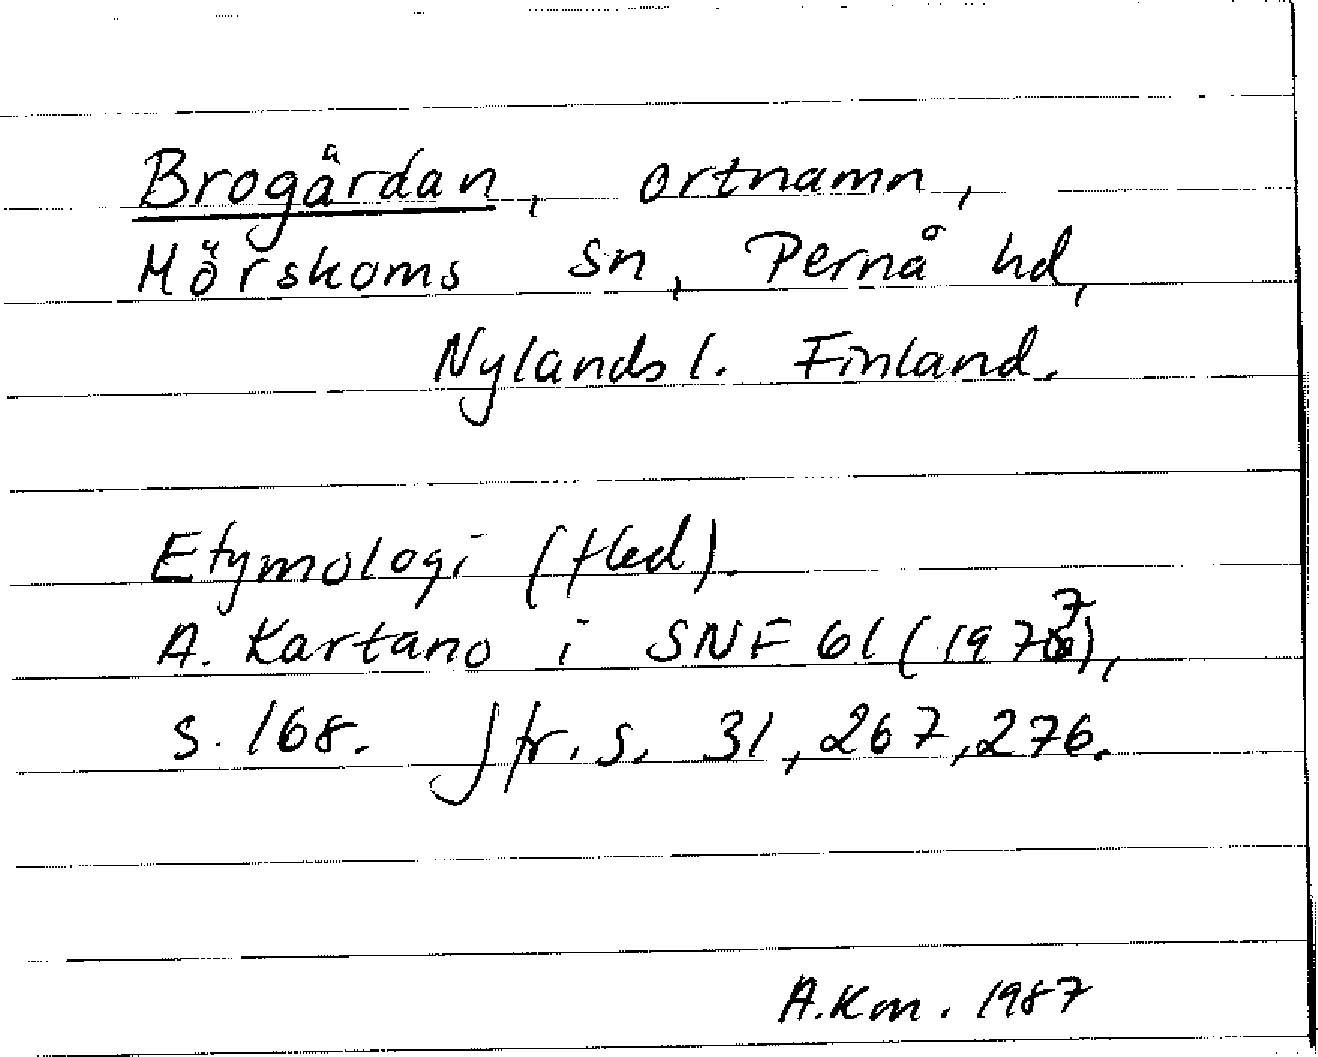 Brogårdan, ortnamn,
Mörskoms sn, Pernå hd,
Nylands l. Finland.
Etymologi (fled).
A. Kartano i SNF 61 (1977),
s. 168. Jfr. s. 31, 267, 276.
A.Kon. 1987